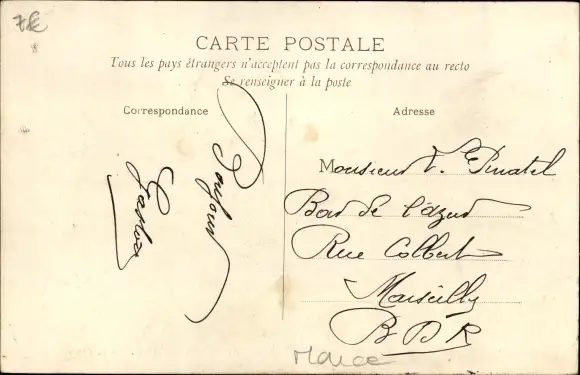 7€
CARTE POSTALE
Tous les pays étrangers n'acceptent pas la correspondance au recto
Se renseigner à la poste
Correspondance
Adresse
Bonjour
Monsieur E. Pinatel
Bar de l'azur
Rue Colbert
Marseille
BDR